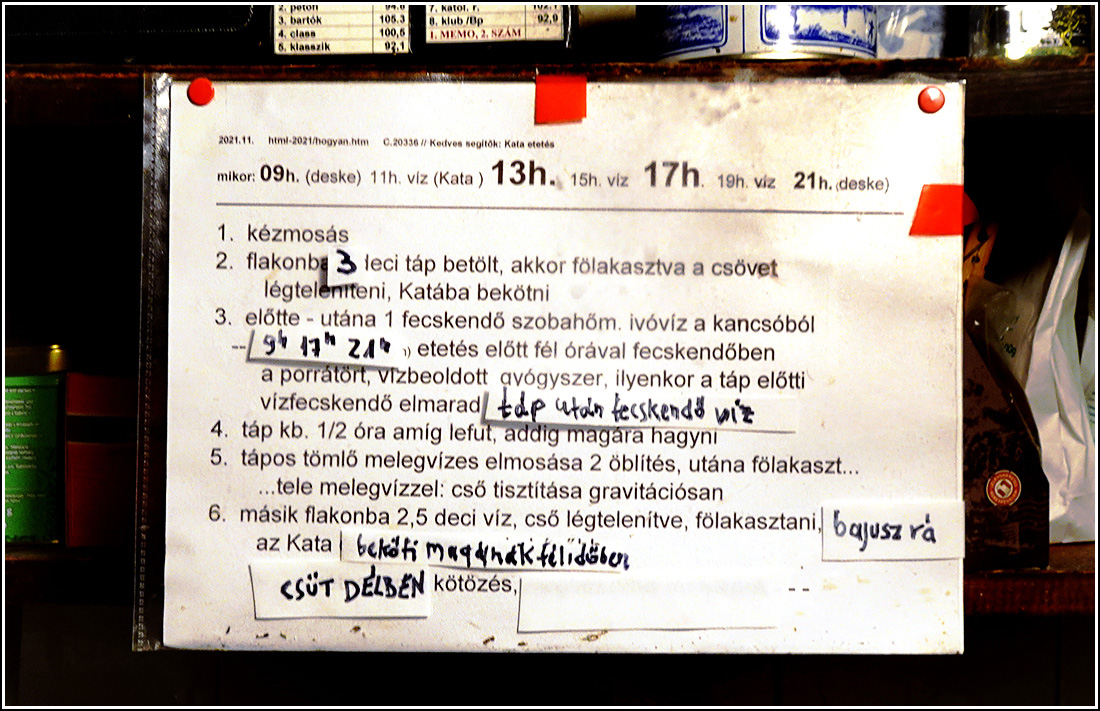 2. petőfi 94.8
3. bartók 105.3
4. class 100,6
5. klasszik 92,1
7. katol. r.
8. klub /Bp 92,9
1. MEMO, 2. SZÁM
2021.11. html-2021/hogyan.htm C.20336 // Kedves segítők: Kata etetés
mikor: 09h. (deske) 11h. víz (Kata ) 13h. 15h. víz 17h. 19h. víz 21h. (deske)
1. kézmosás
2. flakonba 3 deci táp betölt, akkor fölakasztva a csövet
légteleníteni, Katába bekötni
3. előtte - utána 1 fecskendő szobahőm. ivóvíz a kancsóból
-- 9h 17h 21h etetés előtt fél órával fecskendőben
a porrátört, vízbeoldott gyógyszer, ilyenkor a táp előtti
vízfecskendő elmarad táp után fecskendő víz
4. táp kb. 1/2 óra amíg lefut, addig magára hagyni
5. tápos tömlő melegvizes elmosása 2 öblítés, utána fölakaszt...
...tele melegvízzel: cső tisztítása gravitációsan
6. másik flakonba 2,5 deci víz, cső légtelenítve, fölakasztani, bajusz rá
az Kata beköti magának félidőben
CSÜT DÉLBEN kötözés, --